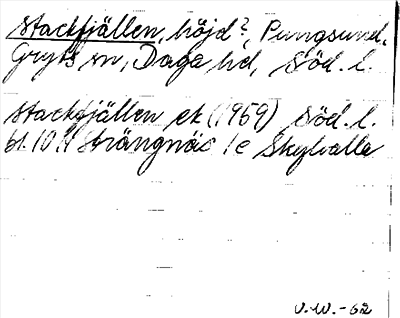 Stackfjällen, höjd?, Pungsund,
Gryts sn, Daga hd, Söd. l.
Stackfjällen ek (1959) Söd. l.
bl. 10 H Strängnäs 1e Skylvalla
V.W.-62